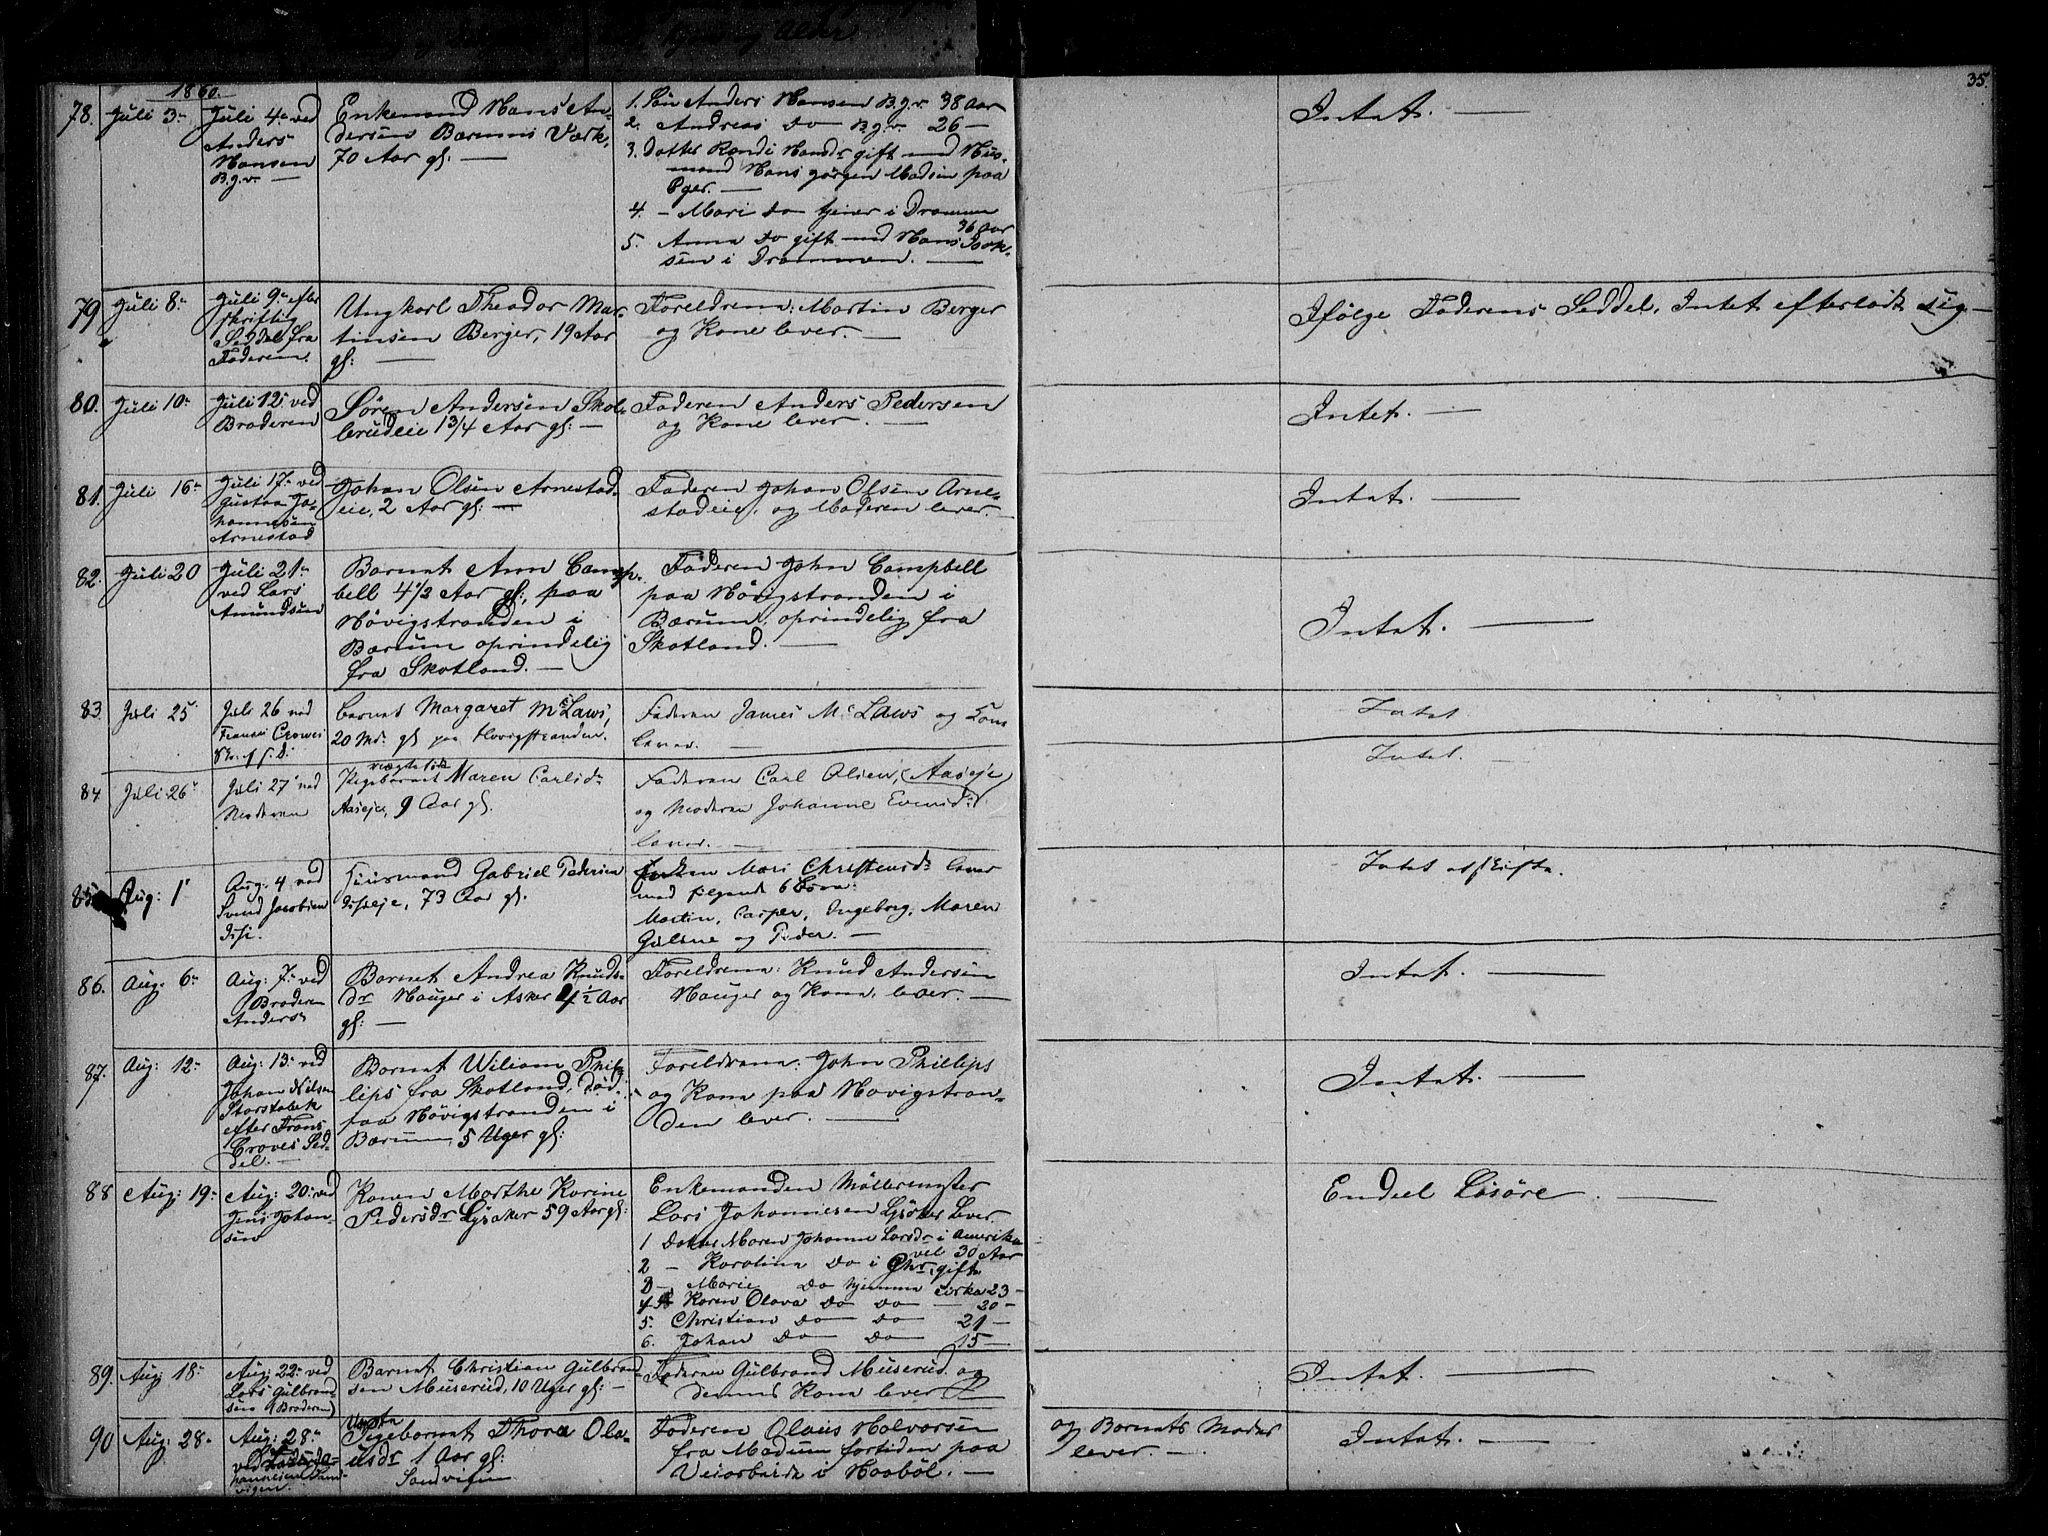 35.
1860.
78. Juli 3- Juli 4- ved Anders Hansen B.g.v. —
Enkemand Hans An-
dersen Bærums Værk,
70 Aar gl: —
1. Søn Anders Hansen B.g.v. 38 Aar
2. Andreas Do B.g.v. 26 —
3. Datter Randi Hansdr gift med Hus-
mand Hans Jørgen Madsen paa
Eger. —
4. — Mari Do tjener i Drammen
36 Aar
5. Anna Do gift med Hans
sen i Drammen. —
Intet. —
79 Juli 8- Juli 9- efter
skriftlig
Seddel fra
Faderen.
Ungkarl Theodor Mar-
tinsen Berger, 19 Aar
gl: —
Foreldrene: Martin Berger
og Kone lever. —
Ifølge Faderens Seddel, Intet efterladt sig. —
80. Juli 10- Juli 12- ved
Broderen
Søren Andersen Skol-
brudeie 1 3/4 Aar gl: —
Faderen Anders Pedersen
og Kone lever. —
Intet. —
81. Juli 16- Juli 17- ved
Gustav Jo-
hannesen
Arnestad
Johan Olsen Arnestad-
eie, 2 Aar gl: —
Faderen Johan Olsen Arne-
stadeie, og Moderen lever. —
Intet. —
82. Juli 20 Juli 21-
ved Lars
Amundsen
Barnet Ann Camp-
bell 4 1/2 Aar gl:, paa
Høvigstranden i
Bærum oprindelig
fra Skotland. —
Faderen John Campbell
paa Høvigstranden i
Bærum, oprindelig fra
Skotland. —
Intet. —
83. Juli 25- Juli 26 ved
Crowes
Barnet Margaret McLaws,
20 Md. gl paa Høvigstranden.
Faderen James McLaws og Kone
lever. —
Intet
84 Juli 26- Juli 27- ved
Moderen
uægte fødte
Pigebarnet Maren Carlsdr
Aaseje, 9 Aar gl.
Faderen Carl Olsen, (Aaseje
og Moderen Johanne Evensdr
lever. —
Intet. —
85 Aug: 1- Aug: 4 ved
Svend Jacobsen
Huusmand Gabriel Pedersen
73 Aar gl.
Enken Mari Christensdr lever
med følgende 6 Børn:
Martin, Casper, Ingeborg, Maren
Guline og Peder. —
Intet at skifte.
86. Aug. 6- Aug. 7- ved
Broderen
Anders
Barnet Andrea Knuds-
dr Hauger i Asker 1/2 Aar
gl: —
Foreldrene: Knud Andersen
Hauger og Kone, lever. —
Intet. —
87. Aug: 12- Aug: 13- ved
Johan Nilsen
Storstabek
efter Frans
Croves Sed-
del. —
Barnet Wiliam Phil-
lips fra Skotland, død
paa Høvigstranden i
Bærum, 5 Uger gl:
Foreldrene: John Phillips
og Kone paa Høvigstran-
den lever. —
Intet. —
88 Aug: 19- Aug: 20- ved
Jens Johan-
sen
Konen Marthe Karine
Pedersdr Lysaker 59 Aar gl:
Enkemanden Møllermester
Lars Johannesen Lysaker lever.
1 Datter Maren Johanne Larsdr i Amerika
vel 30 Aar
2 — Karolina Do i Chr. gift
3 — Marie Do hjemme cirka 23 —
4 — Karen Olava Do Do — 20 —
5. Christian Do Do 21 —
6. Johan Do Do 15 —
Endeel Løsøre. —
89. Aug: 18- Aug: 22- ved
Lars Gulbrand
sen (Broderen)
Barnet Christian Gulbrand
sen Muserud, 10 Uger gl: —
Faderen Gulbrand Muserud og
dennes Kone lever
Intet. —
90 Aug: 28- Aug: 28-
Uægte
Pigebarnet Thora Ola-
usdr 1 Aar gl:
Sandvigen
Faderen Olaus Halvorsen
fra Modum fortiden paa
Veiarbeide i Haabøl. —
og Barnets Moder
lever. —
Intet. —